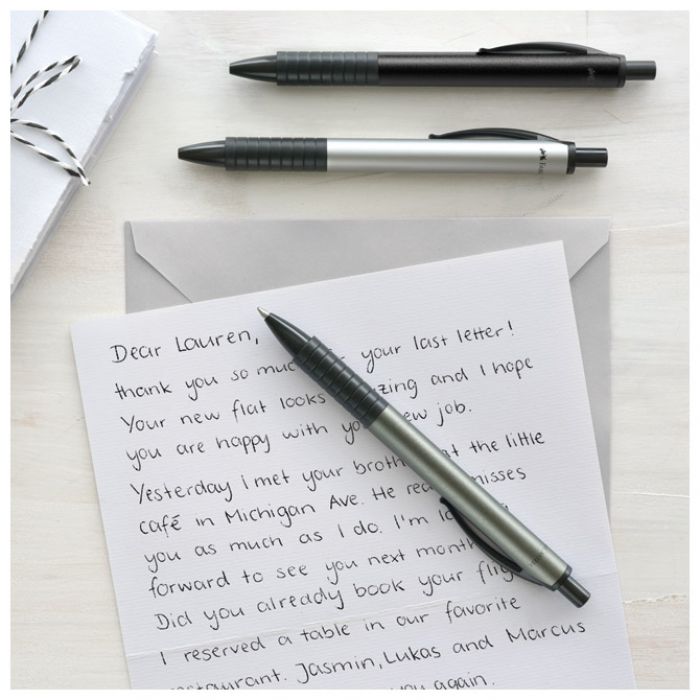 Dear Lauren,
thank you so your last letter!
Your new flat looks and I hope
you are happy with job.
Yesterday I met your the little
café in Michigan Ave. He
you as much as I do. I'm
forward to see you next month
Did you already book your
I reserved a table in our favorite
Jasmin, Lukas and Marcus
again.